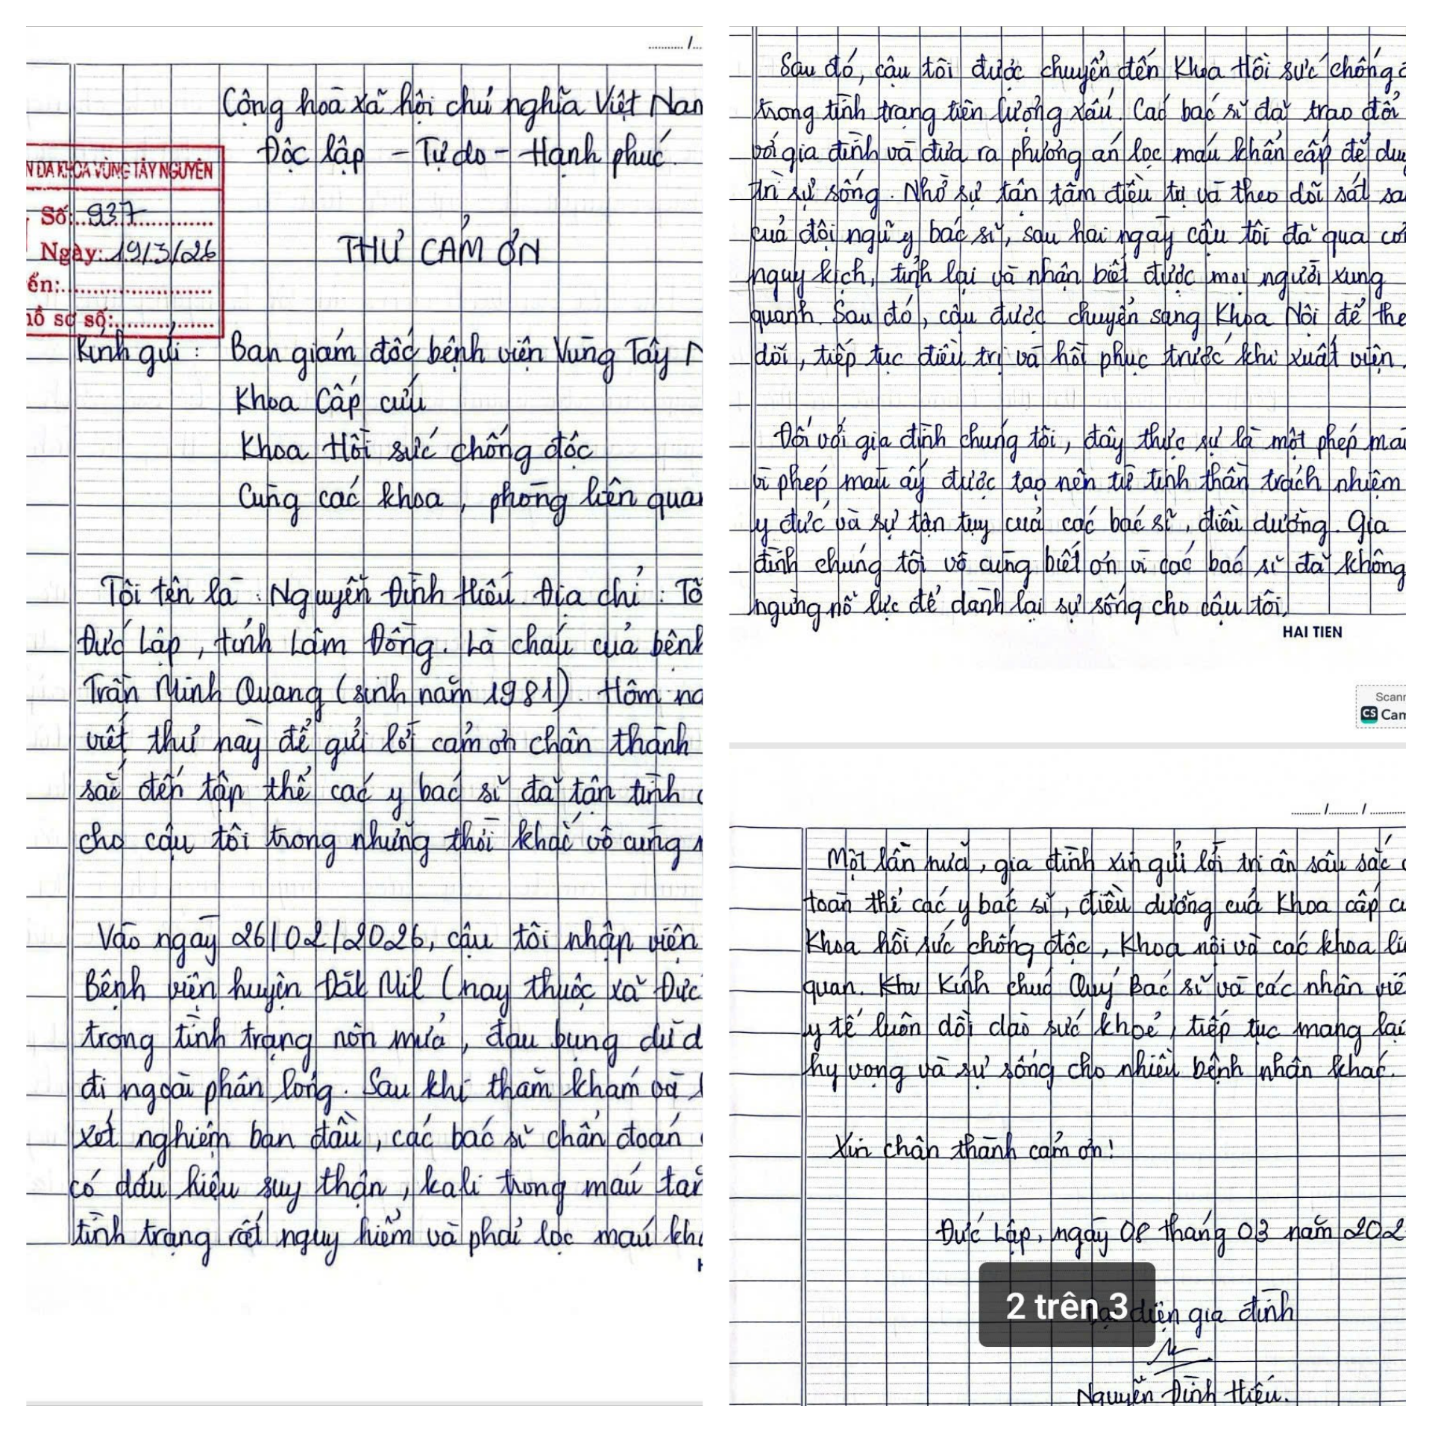 ........../...
Cộng hoà xã hội chủ nghĩa Việt Nam
Độc lập - Tự do - Hạnh phúc.
N ĐA KHOA VÙNG TÂY NGUYÊN
Số: 937
Ngày: 19/3/26
ển:
hồ sơ số:
THƯ CẢM ƠN
Kính gửi : Ban giám đốc bệnh viện Vùng Tây N
Khoa Cấp cứu
Khoa Hồi sức chống độc
Cùng các khoa, phòng liên quan
Tôi tên là : Nguyễn Đình Hiếu. Địa chỉ : Tổ
Đức Lập, tỉnh Lâm Đồng. Là cháu của bệnh
Trần Minh Quang (sinh năm 1981). Hôm na
viết thư này để gửi lời cảm ơn chân thành
sắc đến tập thể các y bác sĩ đã tận tình c
cho cậu tôi trong những thời khắc vô cùng n
Vào ngày 26/02/2026, cậu tôi nhập viện
Bệnh viện huyện Đăk Mil (nay thuộc xã Đức
trong tình trạng nôn mửa, đau bụng dữ d
đi ngoài phân lỏng. Sau khi thăm khám và
xét nghiệm ban đầu, các bác sĩ chẩn đoán
có dấu hiệu suy thận, kali trong máu tăn
tình trạng rất nguy hiểm và phải lọc máu khẩ
Sau đó, cậu tôi được chuyển đến Khoa Hồi sức chống đ
trong tình trạng tiên lượng xấu. Các bác sĩ đã trao đổi
với gia đình và đưa ra phương án lọc máu khẩn cấp để duy
trì sự sống. Nhờ sự tận tâm điều trị và theo dõi sát sa
của đội ngũ y bác sĩ, sau hai ngày cậu tôi đã qua cơn
nguy kịch, tỉnh lại và nhận biết được mọi người xung
quanh. Sau đó, cậu được chuyển sang Khoa Nội để the
dõi, tiếp tục điều trị và hồi phục trước khi xuất viện.
Đối với gia đình chúng tôi, đây thực sự là một phép màu
vì phép màu ấy được tạo nên từ tinh thần trách nhiệm
y đức và sự tận tụy của các bác sĩ, điều dưỡng. Gia
đình chúng tôi vô cùng biết ơn vì các bác sĩ đã không
ngừng nỗ lực để dành lại sự sống cho cậu tôi.
HAI TIEN
Scann
CS Cam
......../......./.........
Một lần nữa, gia đình xin gửi lời tri ân sâu sắc đ
toàn thể các y bác sĩ, điều dưỡng của Khoa cấp cứ
Khoa hồi sức chống độc, Khoa nội và các khoa liê
quan. Kính chúc Quý Bác sĩ và các nhân viê
y tế luôn dồi dào sức khoẻ, tiếp tục mang lại
hy vọng và sự sống cho nhiều bệnh nhân khác.
Xin chân thành cảm ơn!
Đức Lập, ngày 08 tháng 03 năm 202
2 trên 3
diện gia đình
Nguyễn Đình Hiếu.